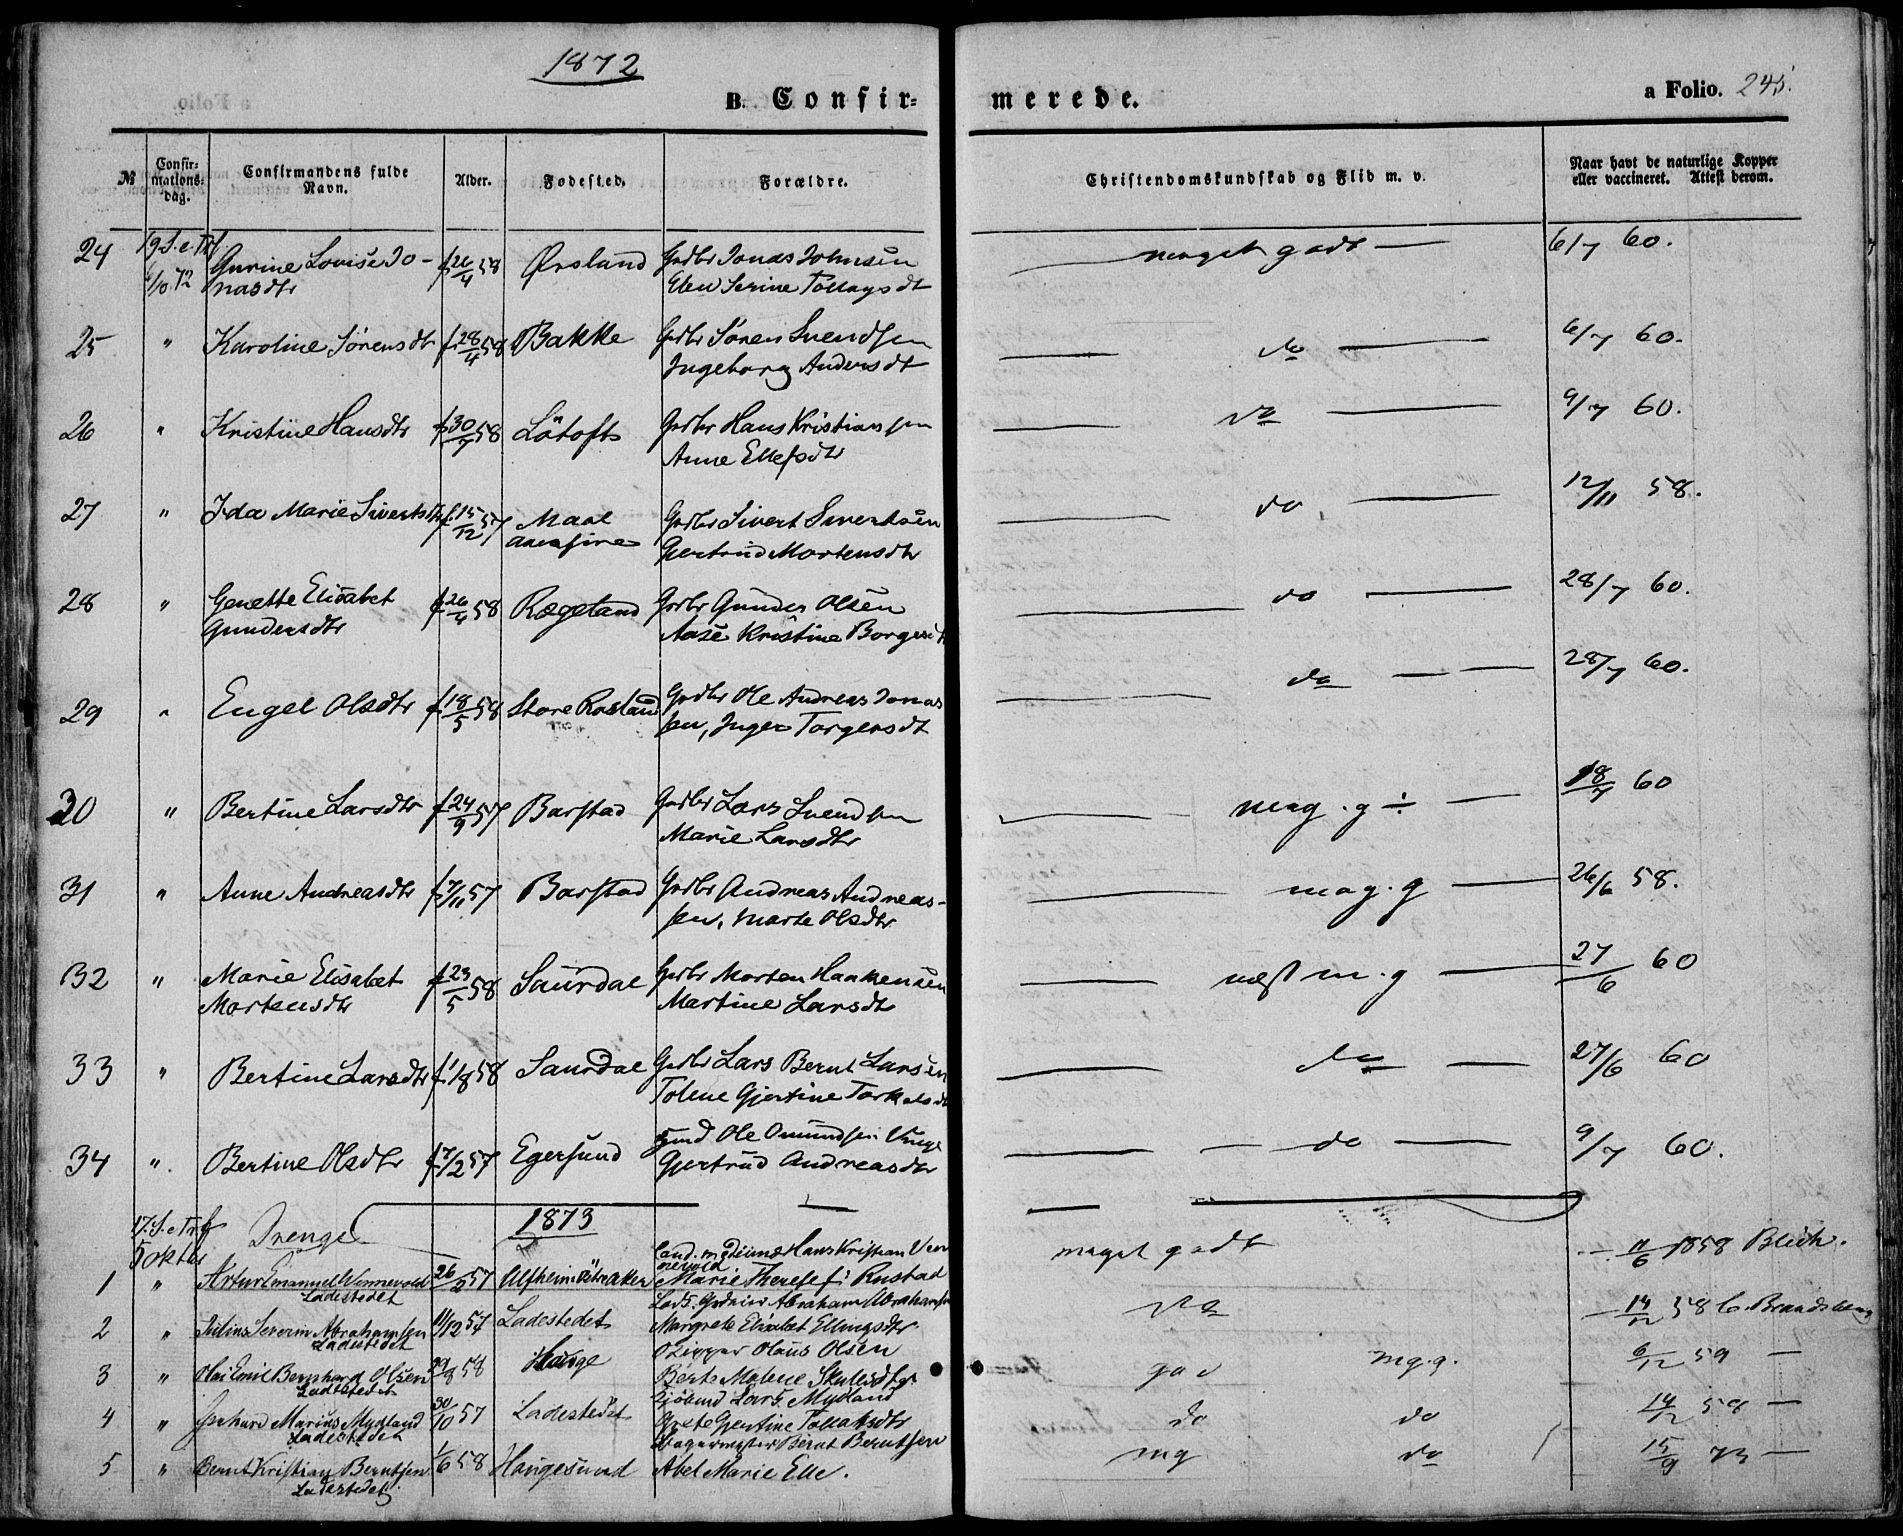 1872
B. Confir=
merede.
a Folio. 245.
№
Confir=
mations=
dag.
Confirmandens fulde
Navn.
Alder.
Fødested.
Forældre.
Christendomskundskab og Flid m. v.
Naar havt de naturlige Kopper
eller vaccineret. Attest derom.
24 19 S. e. Trf. Gurine Lovise Jo- f 26/4 58 Ørsland Grdbr Jonas Johnsen meget godt 6/7 60.
6/10 72 nasdtr Elen Serine Tollagsdt
25 " Karoline Sørensdtr f 28/4 58 Bakke Grdbr Søren Svendsen do 6/7 60.
Ingeborg Andersdt
26 " Kristine Hansdtr f 30/4 58 Løtoft Grdbr Hans Kristiansen do 9/7 60.
Anne Ellefsdtr
27 " Ida Marie Sivertsdtr f 15/12 57 Maal Grdbr Sivert Sivertsen do 12/11 58.
Gjertrud Mortensdtr
28 " Genette Elisabet f 26/4 58 Rægeland Grdbr Gunder Olsen do 28/7 60.
Gundersdtr Aase Kristine Borges
29 " Engel Olsdtr f 18/5 58 Store Rosland Grdbr Ole Andreas Jonas do 28/7 60.
sen, Inger Torgersdt
30 " Bertine Larsdtr f 24/9 57 Barstad Grdbr Lars Svendsen meg. g ÷ 18/7 60
Marie Larsdtr
31 " Anne Andreasdtr f 7/11 57 Barstad Grdbr Andreas Andreas- meg. g 26/6 58.
sen, Marte Olsdtr
32 " Marie Elisabet f 23/5 58 Saurdal Grdbr Morten Haakensen næst m. g 27/6 60
Mortensdtr Martine Larsdt
33 " Bertine Larsdtr f 1/8 58 Saurdal Grdbr Lars Bernt Larsen do 27/6 60
Tolene Gjertine Torkels
34 " Bertine Olsdtr f 7/2 57 Egersund Ole Omundsen do 9/7 60.
Gjertrud Andreasdtr
17. S. e Trf Drenge 1873
5 oktbr
1 " Artur Emanuel Wennevold 26/2 57 Alfheim Cand. medicinæ Hans Kristian Ven meget godt 11/6 1858 Blich.
Ladestedet nevold
Marie Therese f: Rustad
2 " Julius Severin Abrahamsen 11/12 57 Ladestedet Abraham Abrahamsen do 14/12 58 C. Brandsberg
Ladestedet Margrete Elisabet Ellingsdtr
3 " Emil Bernhard Olsen 29/8 58 Hauge Skipper Olaus Olsen god mg. g. 6/12 59 —
Ladestedet Berte Malene
4 " Gerhard Marius Mydland 30/10 57 Ladestedet Lars Mydland do do 14/12 58 —
Ladestedet Grete Gjertine Tollaksdtr
5 " Bernt Kristian Berntsen 1/6 58 Haugesund Bernt Berntsen mg do 15/9 73 —
Ladestedet Abel Marie Elle.